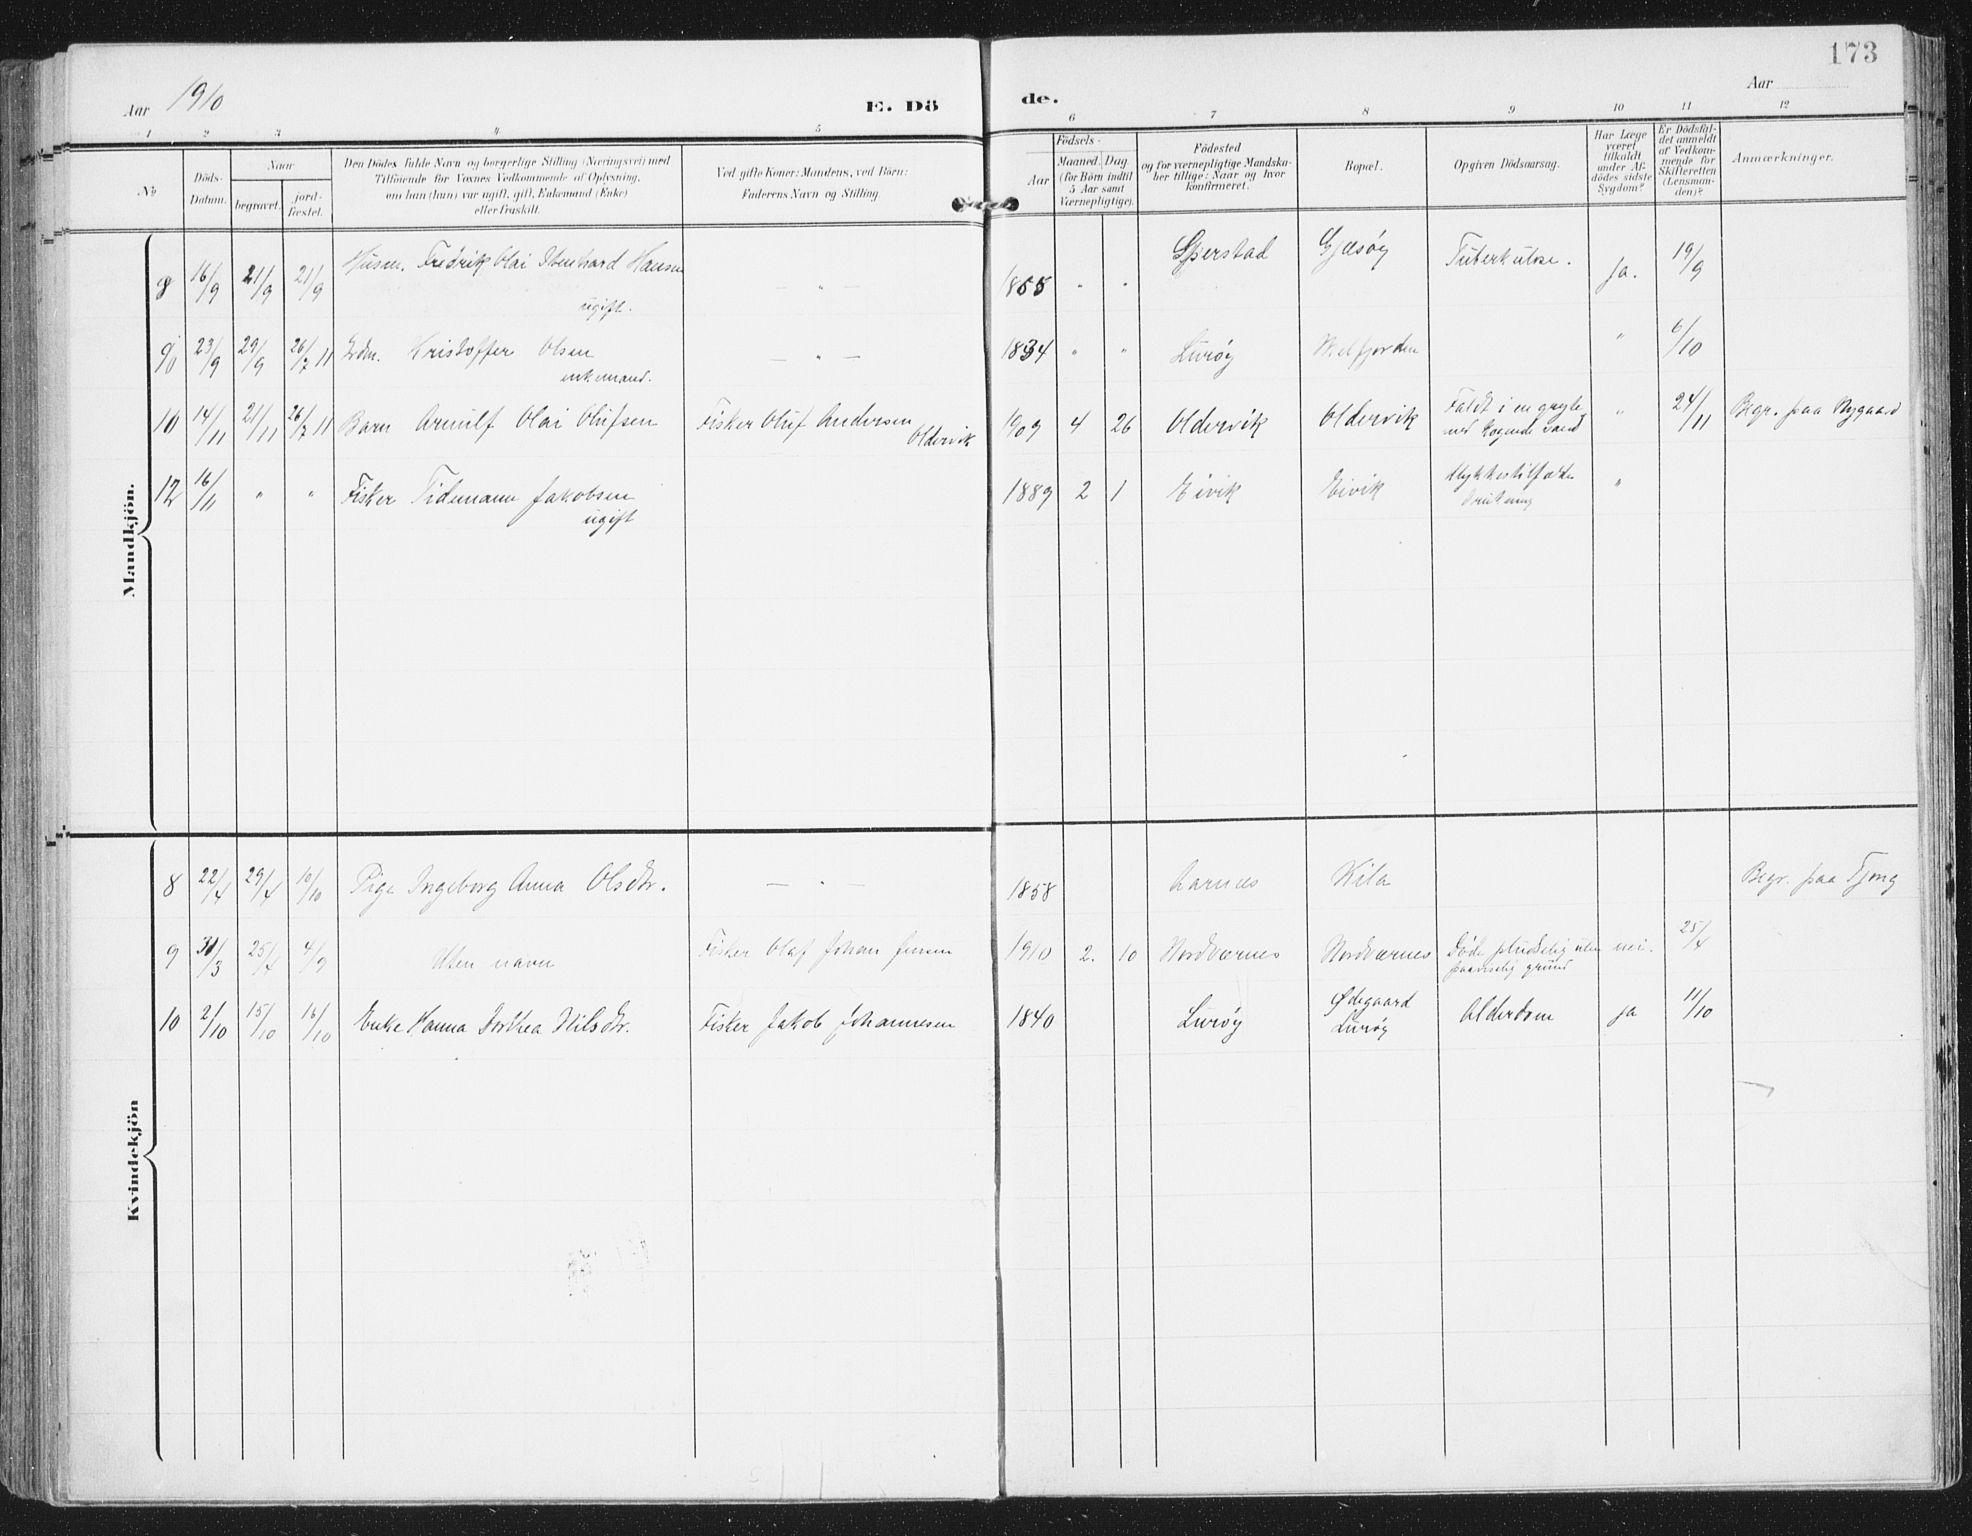 173
Aar 1910
E. Dö
de.
Aar
1 2 3 4 5 6 7 8 9 10 11 12
No
Döds-
Datum.
Naar
begravet.
jord-
fæstet.
Den Dödes fulde Navn og borgerlige Stilling (Næringsvei) med
Tilföiende for Voxnes Vedkommende af Oplysning,
om han (hun) var ugift, gift, Enkemand (Enke)
eller fraskilt.
Ved gifte Koner: Mandens, ved Börn:
Faderens Navn og Stilling.
Födsels-
Aar
Maaned. Dag
(for Börn indtil
5 Aar samt
Værnepligtige).
Födested
og for værnepligtige Mandska-
ber tillige: Naar og hvor
konfirmeret.
Bopæl.
Opgiven Dödsaarsag.
Har Læge
været
tilkaldt
under Af-
dödes sidste
Sygdom?
Er Dödsfal-
det anmeldt
af Vedkom-
mende for
Skifteretten
(Lensman-
den)?
Anmærkninger.
Mandkjön.
8 16/9 21/9 21/9 Husm. Fredrik Olai Hansen 1855 " " Gjerstad Gjæsøy Tuberkulose. ja. 19/9
ugift.
9 23/9 29/9 26/7 11 Kristoffer Olsen 1834 " " Lurøy Melfjorden " 6/10
enkemand.
10 14/11 21/11 26/7 11 Barn Arnulf Olai Olufsen Fisker Oluf Andersen 1909 4 26 Oldervik Oldervik Faldt i en gryte " 24/11 Begr. paa Nygaard
Oldervik
med kogende vand
12 16/11 " " Fisker Tidemann Jakobsen 1889 2 1 Eivik Eivik Ulykkestilfælde "
ugift
drukning
Kvindekjön
8 22/4 29/4 10/10 Pige Ingeborg Anna Olsdtr. — " — 1858 Aarnes Kila Begr. paa Tjong
9 31/3 25/4 4/9 Uten navn Fisker Olaf Johan Jensen 1910 2. 10 Nordværnes Nordværnes Døde pludselig uten nei. 25/4
paaviselig grund
10 2/10 15/10 16/10 Enke Hanna Dorthea Nilsdtr. Fisker Jakob Johannesen 1840 Lurøy Ødegaard Alderdom ja 11/10
Lurøy